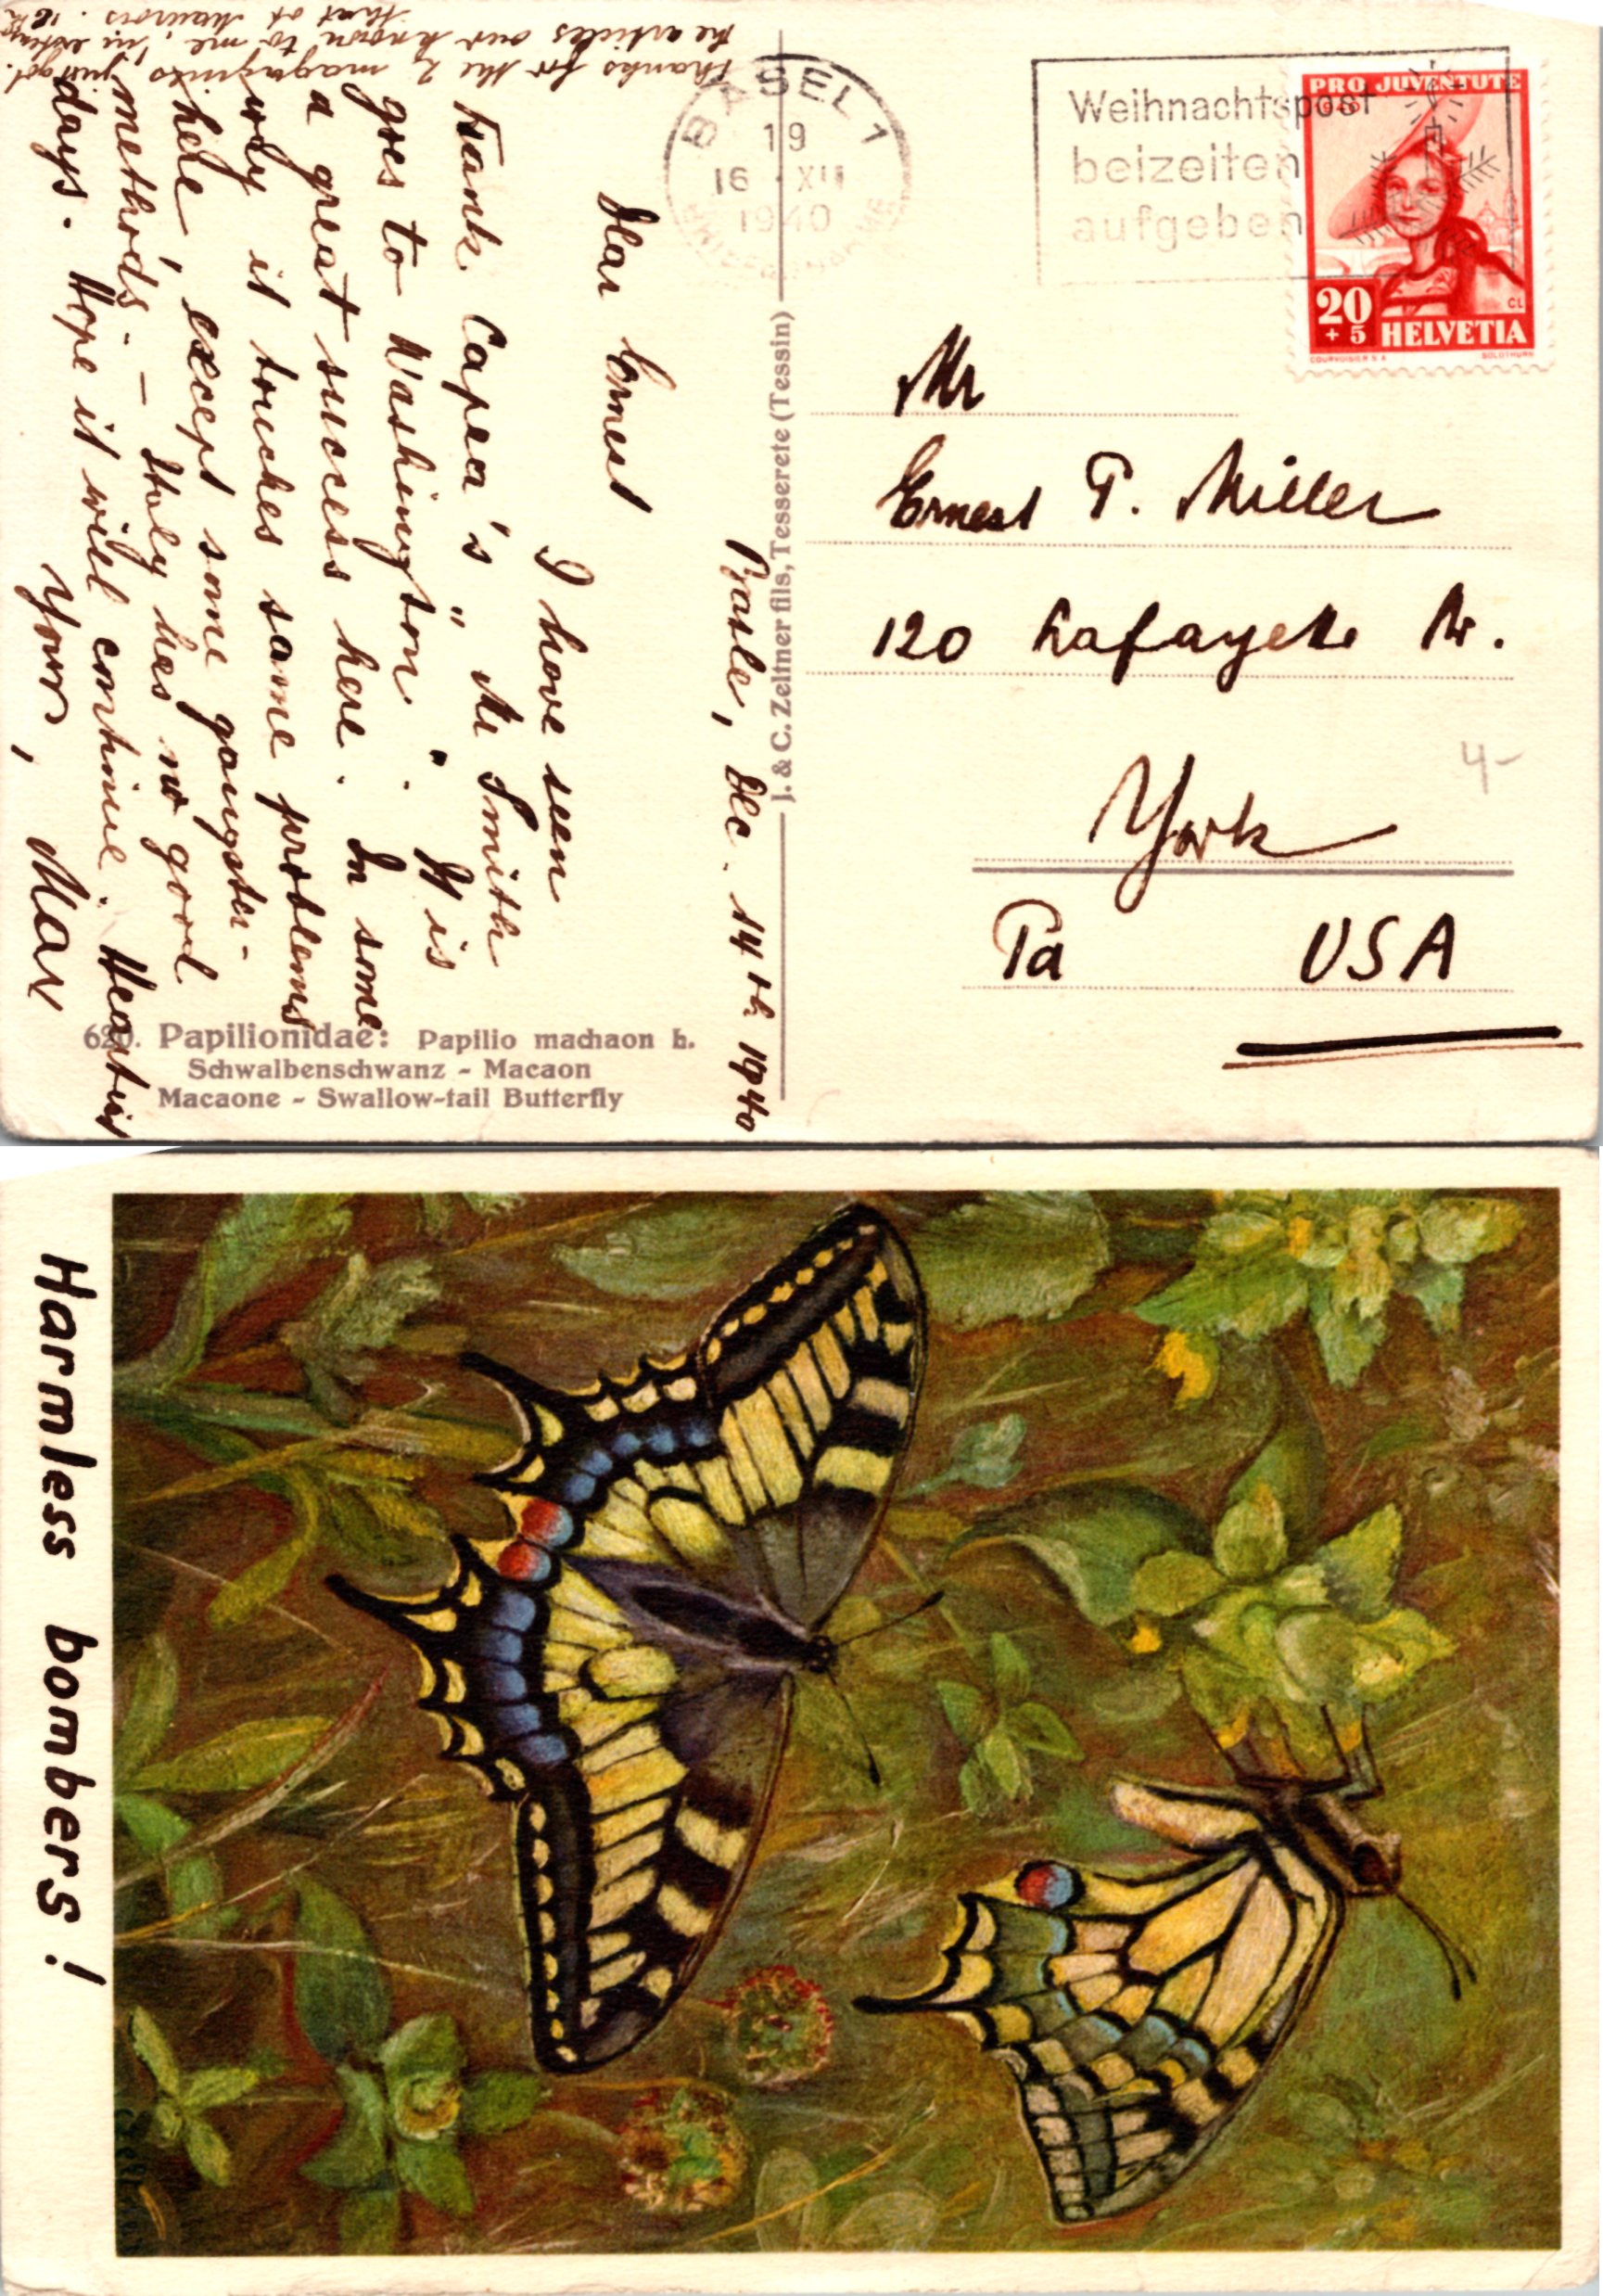 BASEL 1
19
16.XII
1940
Weihnachtspost
beizeiten
aufgeben
PRO JUVENTUTE
1940
20
+5
HELVETIA
CL
COURVOISIER S.A.
SOLOTHURN
Mr
Ernest P. Miller
120 Lafayette
York
Pa USA
4-
J. & C. Zeltner fils, Tesserete (Tessin)
Basle, Dec. 14th 1940
Dear Ernest
I have seen
Frank Capra's "Mr Smith
goes to Washington". It is
a great success here. In some
way it touches same problems
here, except some gangster-
methods. – Italy has no good
days. Hope it will continue. Heartiest
Yours, Max
Thanks for the 2 magazines just got.
the articles are known to me, in
that of Maurois.
620. Papilionidae: Papilio machaon L.
Schwalbenschwanz - Macaon
Macaone - Swallow-tail Butterfly
Harmless bombers!